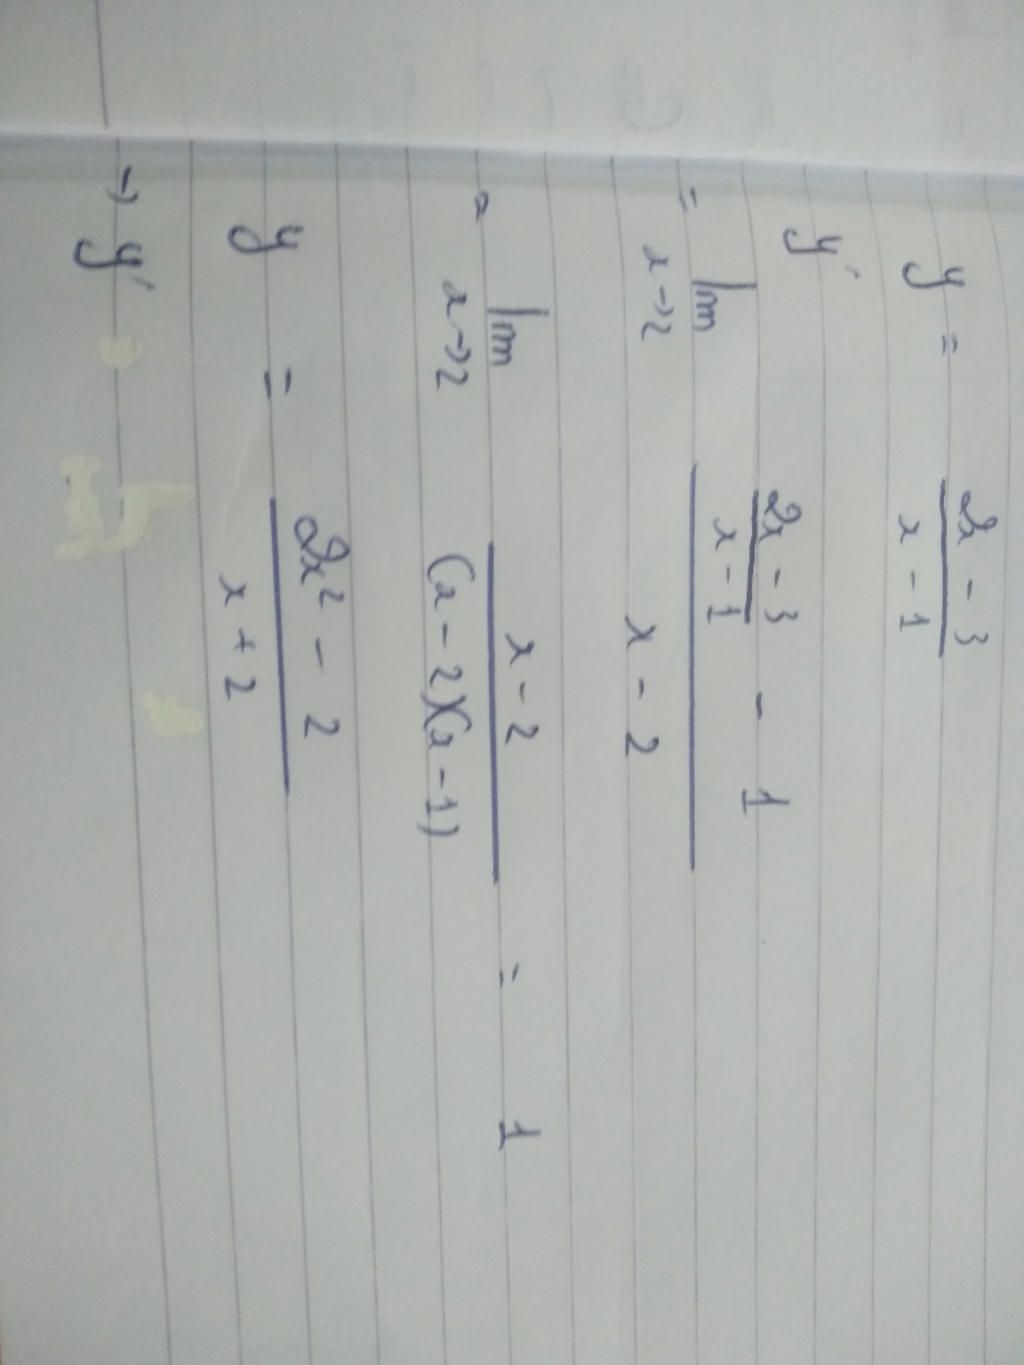 y = \frac{2x - 3}{x - 1}
y'
= \lim_{x \to 2} \frac{\frac{2x - 3}{x - 1} - 1}{x - 2}
= \lim_{x \to 2} \frac{x - 2}{(x - 2)(x - 1)} = 1
y = \frac{2x^2 - 2}{x + 2}
→ y'